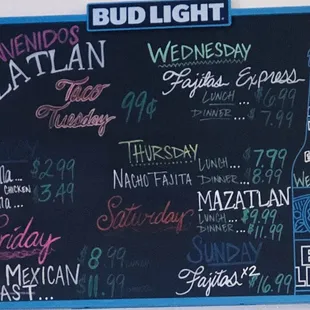 BUD LIGHT
VENIDOS
ATLAN
Taco
Tuesday 99¢
$2.99
CHICKEN $3.49
Friday
$8.99 LUNCH
MEXICAN
AST... $11.99
WEDNESDAY
Fajitas Express
LUNCH ... $6.99
DINNER ... $7.99
THURSDAY
NACHO FAJITA
LUNCH... $7.99
DINNER... $8.99
Saturday
MAZATLAN
LUNCH... $9.99
DINNER... $11.99
SUNDAY
Fajitas x2 $16.99